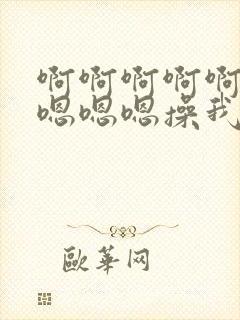 啊啊啊啊啊
嗯嗯嗯操我
歐華网